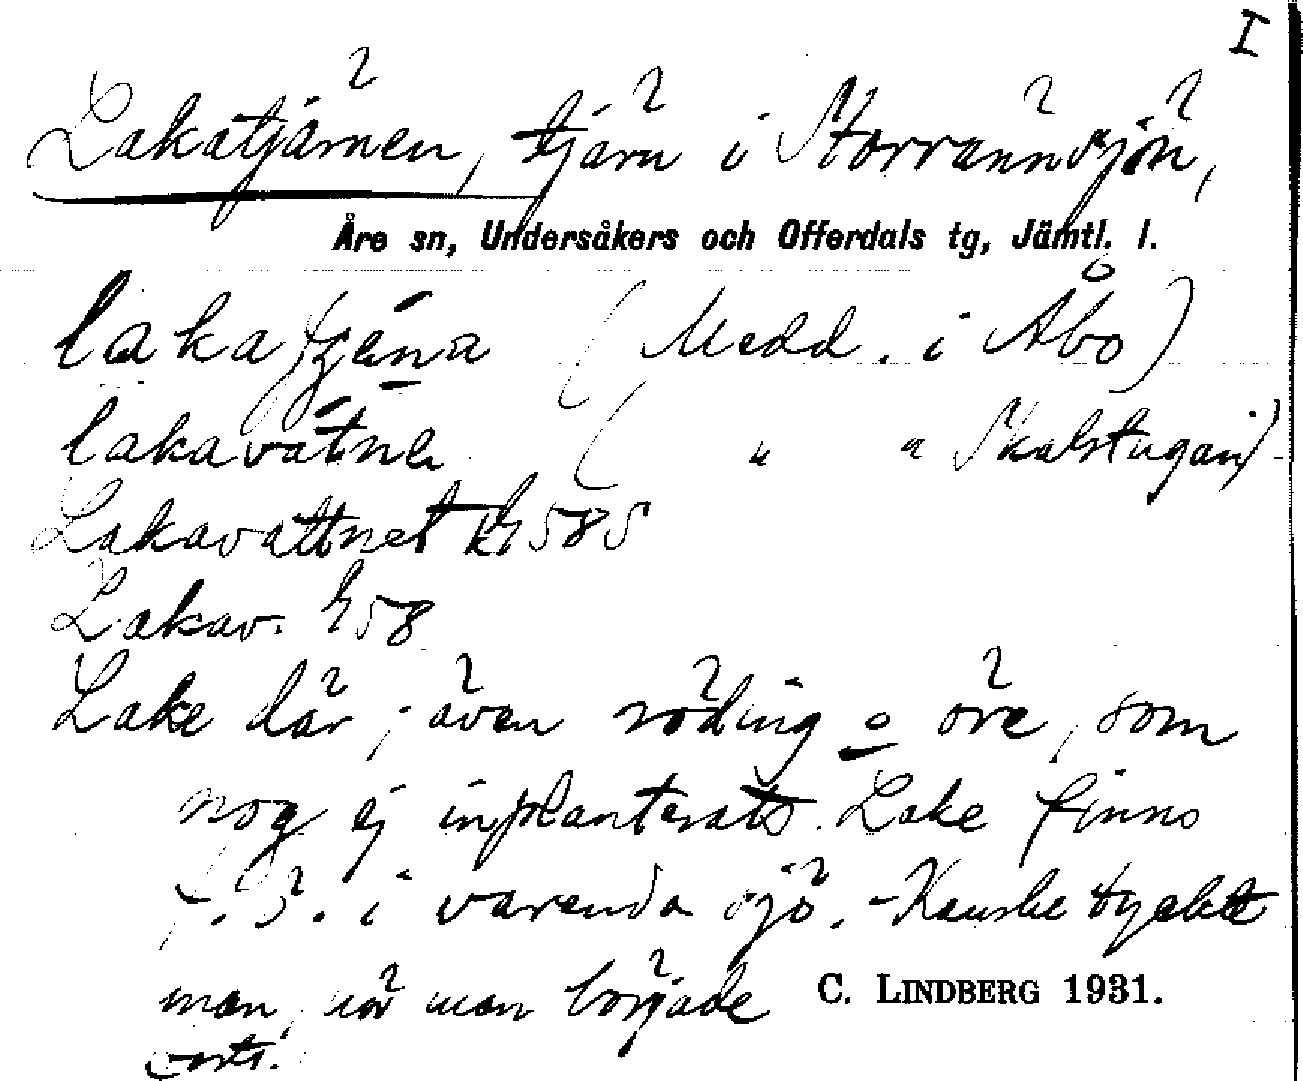 I
Lakatjärnen, tjärn i Storrännsjön,
Åre sn, Undersåkers och Offerdals tg, Jämtl. l.
(Medd. i Åbo)
lakavátnə ( " " Skalstugan)
Lakavattnet K 58 S
Lakav. K 58
Lake där, även röding o öre, som
nog ej inplanterats. Lake finns
f. ö. i varenda sjö. - Kanske tyckte
man, när man började
C. LINDBERG 1931.